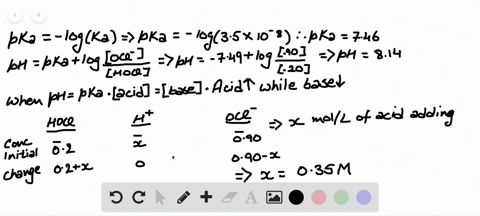 pKa = -log(Ka) => pKa = -log(3.5×10⁻⁸) ∴ pKa = 7.46
pH = pKa + log [OCl⁻]/[HOCl] => pH = -7.49 + log [.90]/[.20] => pH = 8.14
when pH = pKa · [acid] = [base] · Acid↑ while base↓
HOCl H⁺ OCl⁻ => x mol/L of acid adding
Conc
Initial 0.2 x 0.90
Change 0.2+x 0 0.90-x
=> x = 0.35M